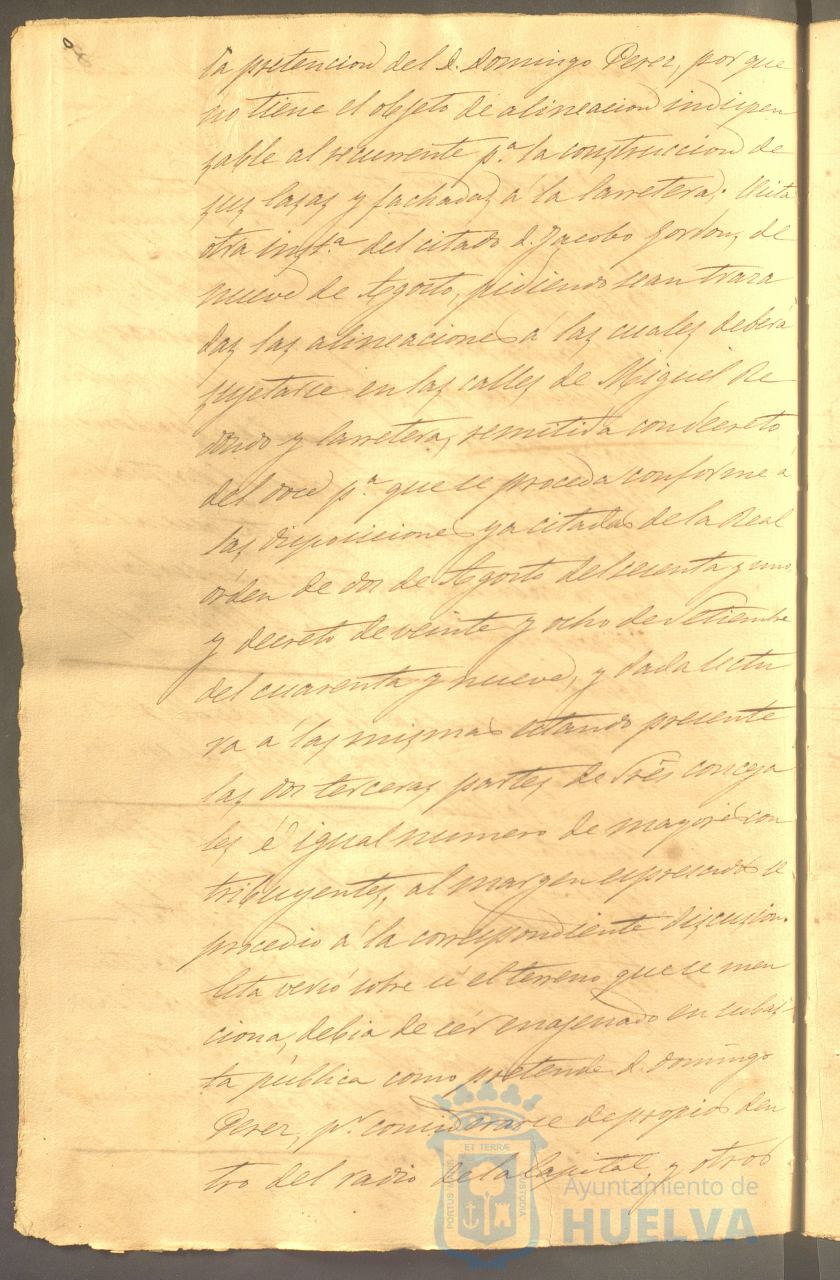 la pretencion del D. Domingo Perez, por que
no tiene el objeto de alineacion indispen
zable al recurrente p.ª la construccion de
sus casas y fachadas a la carretera. Vista
otra inst.ª del citado D. Jacobo Gordon, de
nueve de Agosto, pidiendo sean traza
das las alineaciones á las cuales deberá
sujetarse en las calles de Miguel Re
dondo y Carretera, remitida con decreto
del doce p.ª que se proceda conforme á
las disposiciones ya citadas de la Real
órden de dos de Agosto del sesenta y uno,
y decreto de veinte y ocho de Setiembre
del cuarenta y nueve, y dada lectu
ra á las mismas estando presente
las dos terceras partes de Sres conceja
les é igual numero de mayores con
tribuyentes, al margen espresados se
procedio á la correspondiente discusion.
Esta versó sobre si el terreno que se men
ciona, debia de ser enagenado en subas
ta pública como pretende D. Domingo
Perez, p.r considerarse de propios den
tro del radio de la Capital, y otros
PORTUS MARIS ET TERRÆ CUSTODIA
Ayuntamiento de
HUELVA